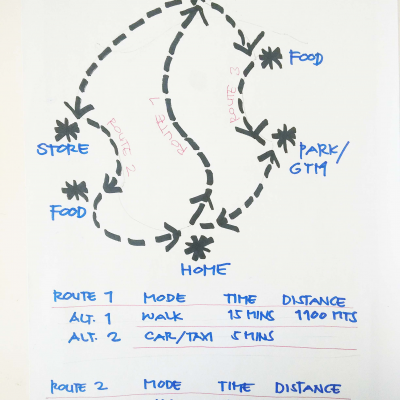 FOOD
ROUTE 3
ROUTE 1
ROUTE 2
STORE
PARK/
GYM
FOOD
HOME
ROUTE 1 MODE TIME DISTANCE
ALT. 1 WALK 15 MINS 1100 MTS
ALT. 2 CAR/TAXI 5 MINS
ROUTE 2 MODE TIME DISTANCE